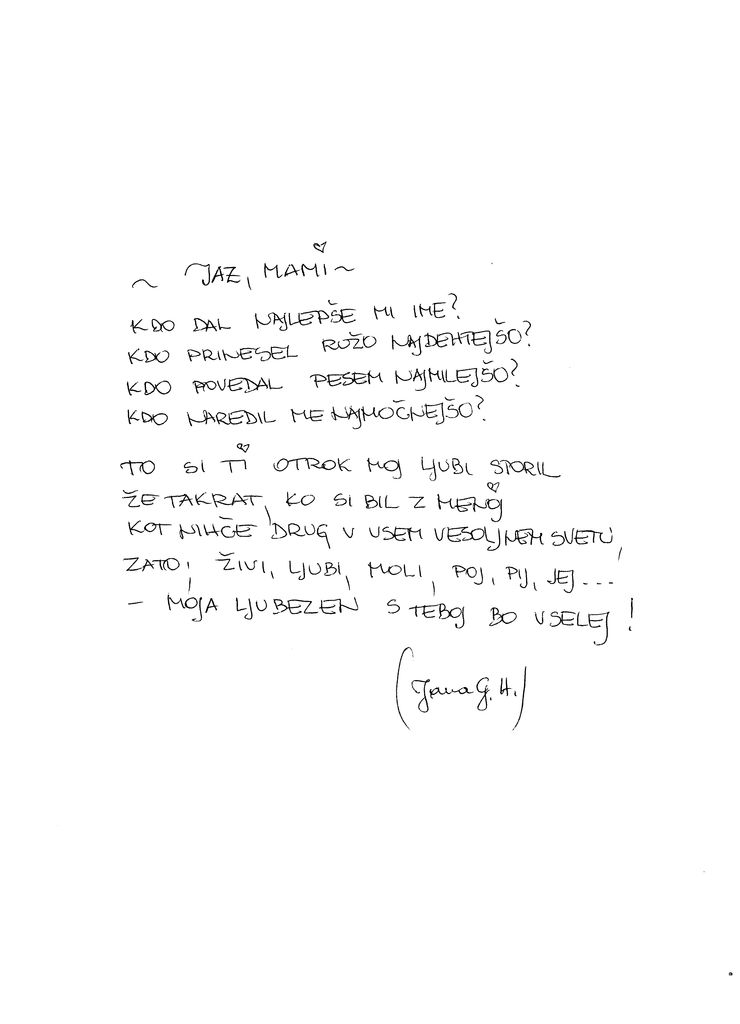 ~ JAZ, MAMI ~
KDO DAL NAJLEPŠE MI IME?
KDO PRINESEL ROŽO NAJDEHTEJŠO?
KDO POVEDAL PESEM NAJMILEJŠO?
KDO NAREDIL ME NAJMOČNEJŠO?
TO SI TI OTROK MOJ LJUBI STORIL
ŽE TAKRAT, KO SI BIL Z MENOJ
KOT NIHČE DRUG V VSEM VESOLJNEM SVETU,
ZATO, ŽIVI, LJUBI, MOLI, POJ, PIJ, JEJ...
- MOJA LJUBEZEN S TEBOJ BO VSELEJ!
(Jana G. H.)